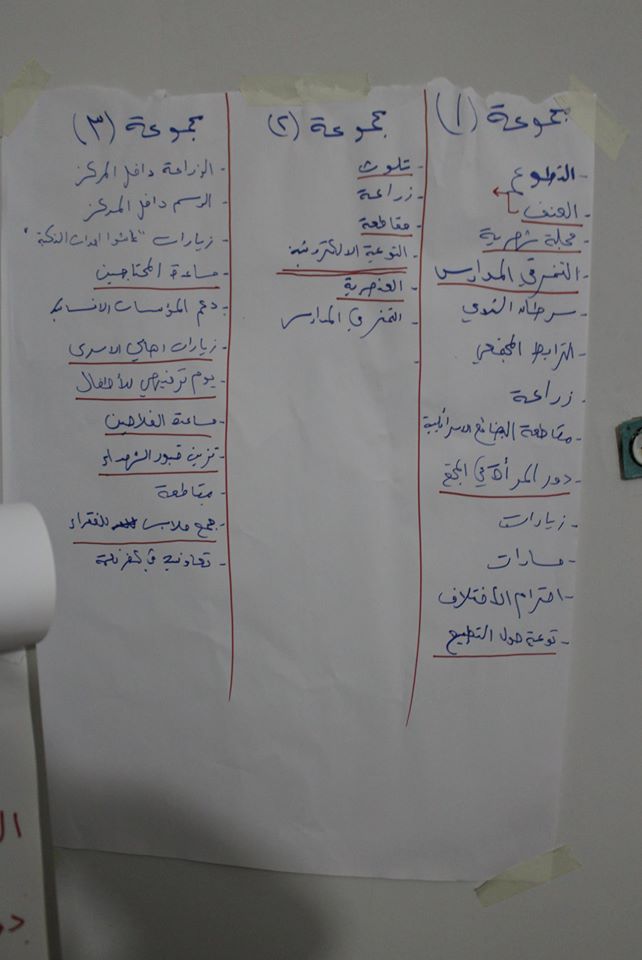 مجموعة (١)
- التطوع
- العنف
- مجلة شهرية
- التنمر في المدارس
- سرطان الثدي
- الترابط المجتمعي
- زراعة
- مقاطعة البضائع الاسرائيلية
- دور المرأة في المجتمع
- زيارات
- مسارات
- احترام الأختلاف
- توعية حول التطبيع
مجموعة (٢)
- تلوث
- زراعة
- مقاطعة
- التوعية الالكترونية
- العنصرية
- التنمر في المدارس
-
مجموعة (٣)
- الزراعة داخل المركز
- الرسم داخل المركز
- زيارات "عاشوا احداث النكبة"
- مساعدة المحتاجين
- دعم المؤسسات الانسانية
- زيارات اهالي الاسرى
- يوم ترفيهي للأطفال
- مساعدة الفلاحين
- تزيين قبور الشهداء
- مقاطعة
- جمع ملابس للفقراء
- تعاونية